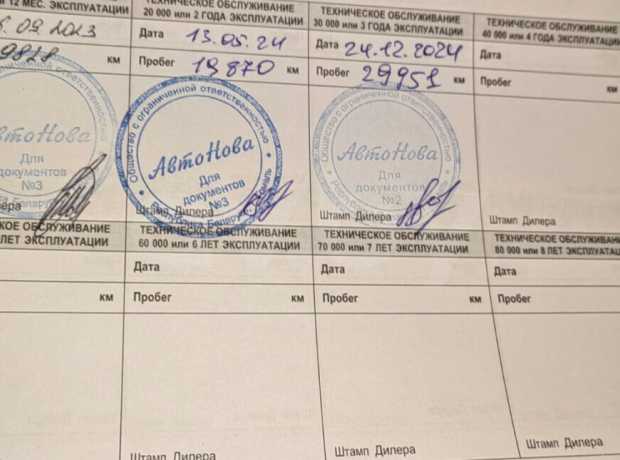 12 МЕС. ЭКСПЛУАТАЦИИ
09.2023
9828 км
АвтоНова
Для
документов
№3
ТЕХНИЧЕСКОЕ ОБСЛУЖИВАНИЕ
20 000 или 2 ГОДА ЭКСПЛУАТАЦИИ
Дата 13.05.24
Пробег 19870 км
Общество с ограниченной ответственностью
АвтоНова
Для
документов
№3
Штамп Дилера
ТЕХНИЧЕСКОЕ ОБСЛУЖИВАНИЕ
30 000 или 3 ГОДА ЭКСПЛУАТАЦИИ
Дата 24.12.2024
Пробег 29951 км
Общество с ограниченной ответственностью
АвтоНова
Для
документов
№2
Штамп Дилера
ТЕХНИЧЕСКОЕ ОБСЛУЖИВАНИЕ
40 000 или 4 ГОДА ЭКСПЛУАТАЦИИ
Дата
Пробег км
Штамп Дилера
ОБСЛУЖИВАНИЕ
ЛЕТ ЭКСПЛУАТАЦИИ
км
ТЕХНИЧЕСКОЕ ОБСЛУЖИВАНИЕ
60 000 или 6 ЛЕТ ЭКСПЛУАТАЦИИ
Дата
Пробег км
Штамп Дилера
ТЕХНИЧЕСКОЕ ОБСЛУЖИВАНИЕ
70 000 или 7 ЛЕТ ЭКСПЛУАТАЦИИ
Дата
Пробег км
Штамп Дилера
ТЕХНИЧЕСКОЕ ОБСЛУЖИВАНИЕ
80 000 или 8 ЛЕТ
Дата
Пробег
Штамп Дилера